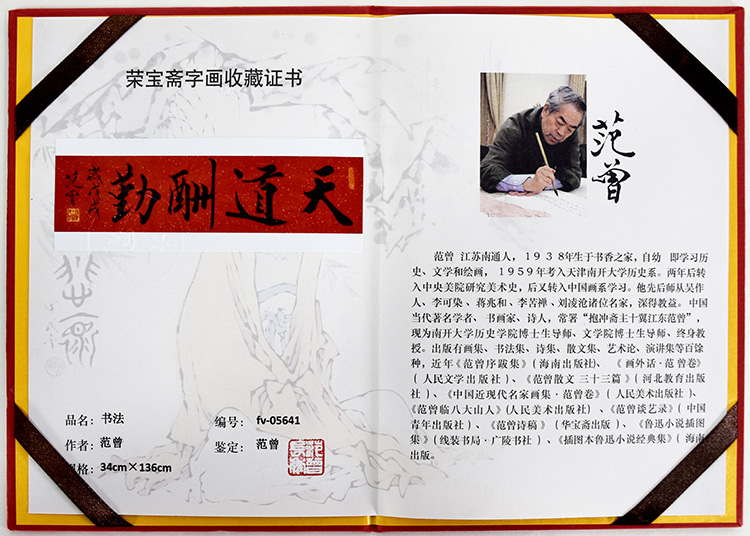 荣宝斋字画收藏证书
天道酬勤
岁戊戌
范曾
品名： 书法
编号： fv-05641
作者： 范曾
鉴定： 范曾
规格： 34cm×136cm
范曾
范曾 江苏南通人，１９３８年生于书香之家，自幼 即学习历
史、文学和绘画，１９５９年考入天津南开大学历史系。两年后转
入中央美院研究美术史，后又转入中国画系学习。他先后师从吴作
人、李可染、蒋兆和、李苦禅、刘凌沧诸位名家，深得教益。中国
当代著名学者、 书画家、诗人，常署“抱冲斋主十翼江东范曾”，
现为南开大学历史学院博士生导师、文学院博士生导师、终身教
授。出版有画集、书法集、诗集、散文集、艺术论、演讲集等百馀
种，近年《范曾序跋集》（海南出版社）、《 画外话·范 曾卷》
（ 人民文学出版社 ）、《范曾散文 三十三篇 》（ 河北教育出版社
）、《中国近现代名家画集·范曾卷》（ 人民美术出版社 ）、
《范曾临八大山人》(人民美术出版社) 、《范曾谈艺录》（ 中国
青年出版社 ）、《范曾诗稿 》（ 华宝斋出版 ）、《鲁迅小说插图
集》（线装书局·广陵书社 ）、《插图本鲁迅小说经典集》（ 海南
出版。